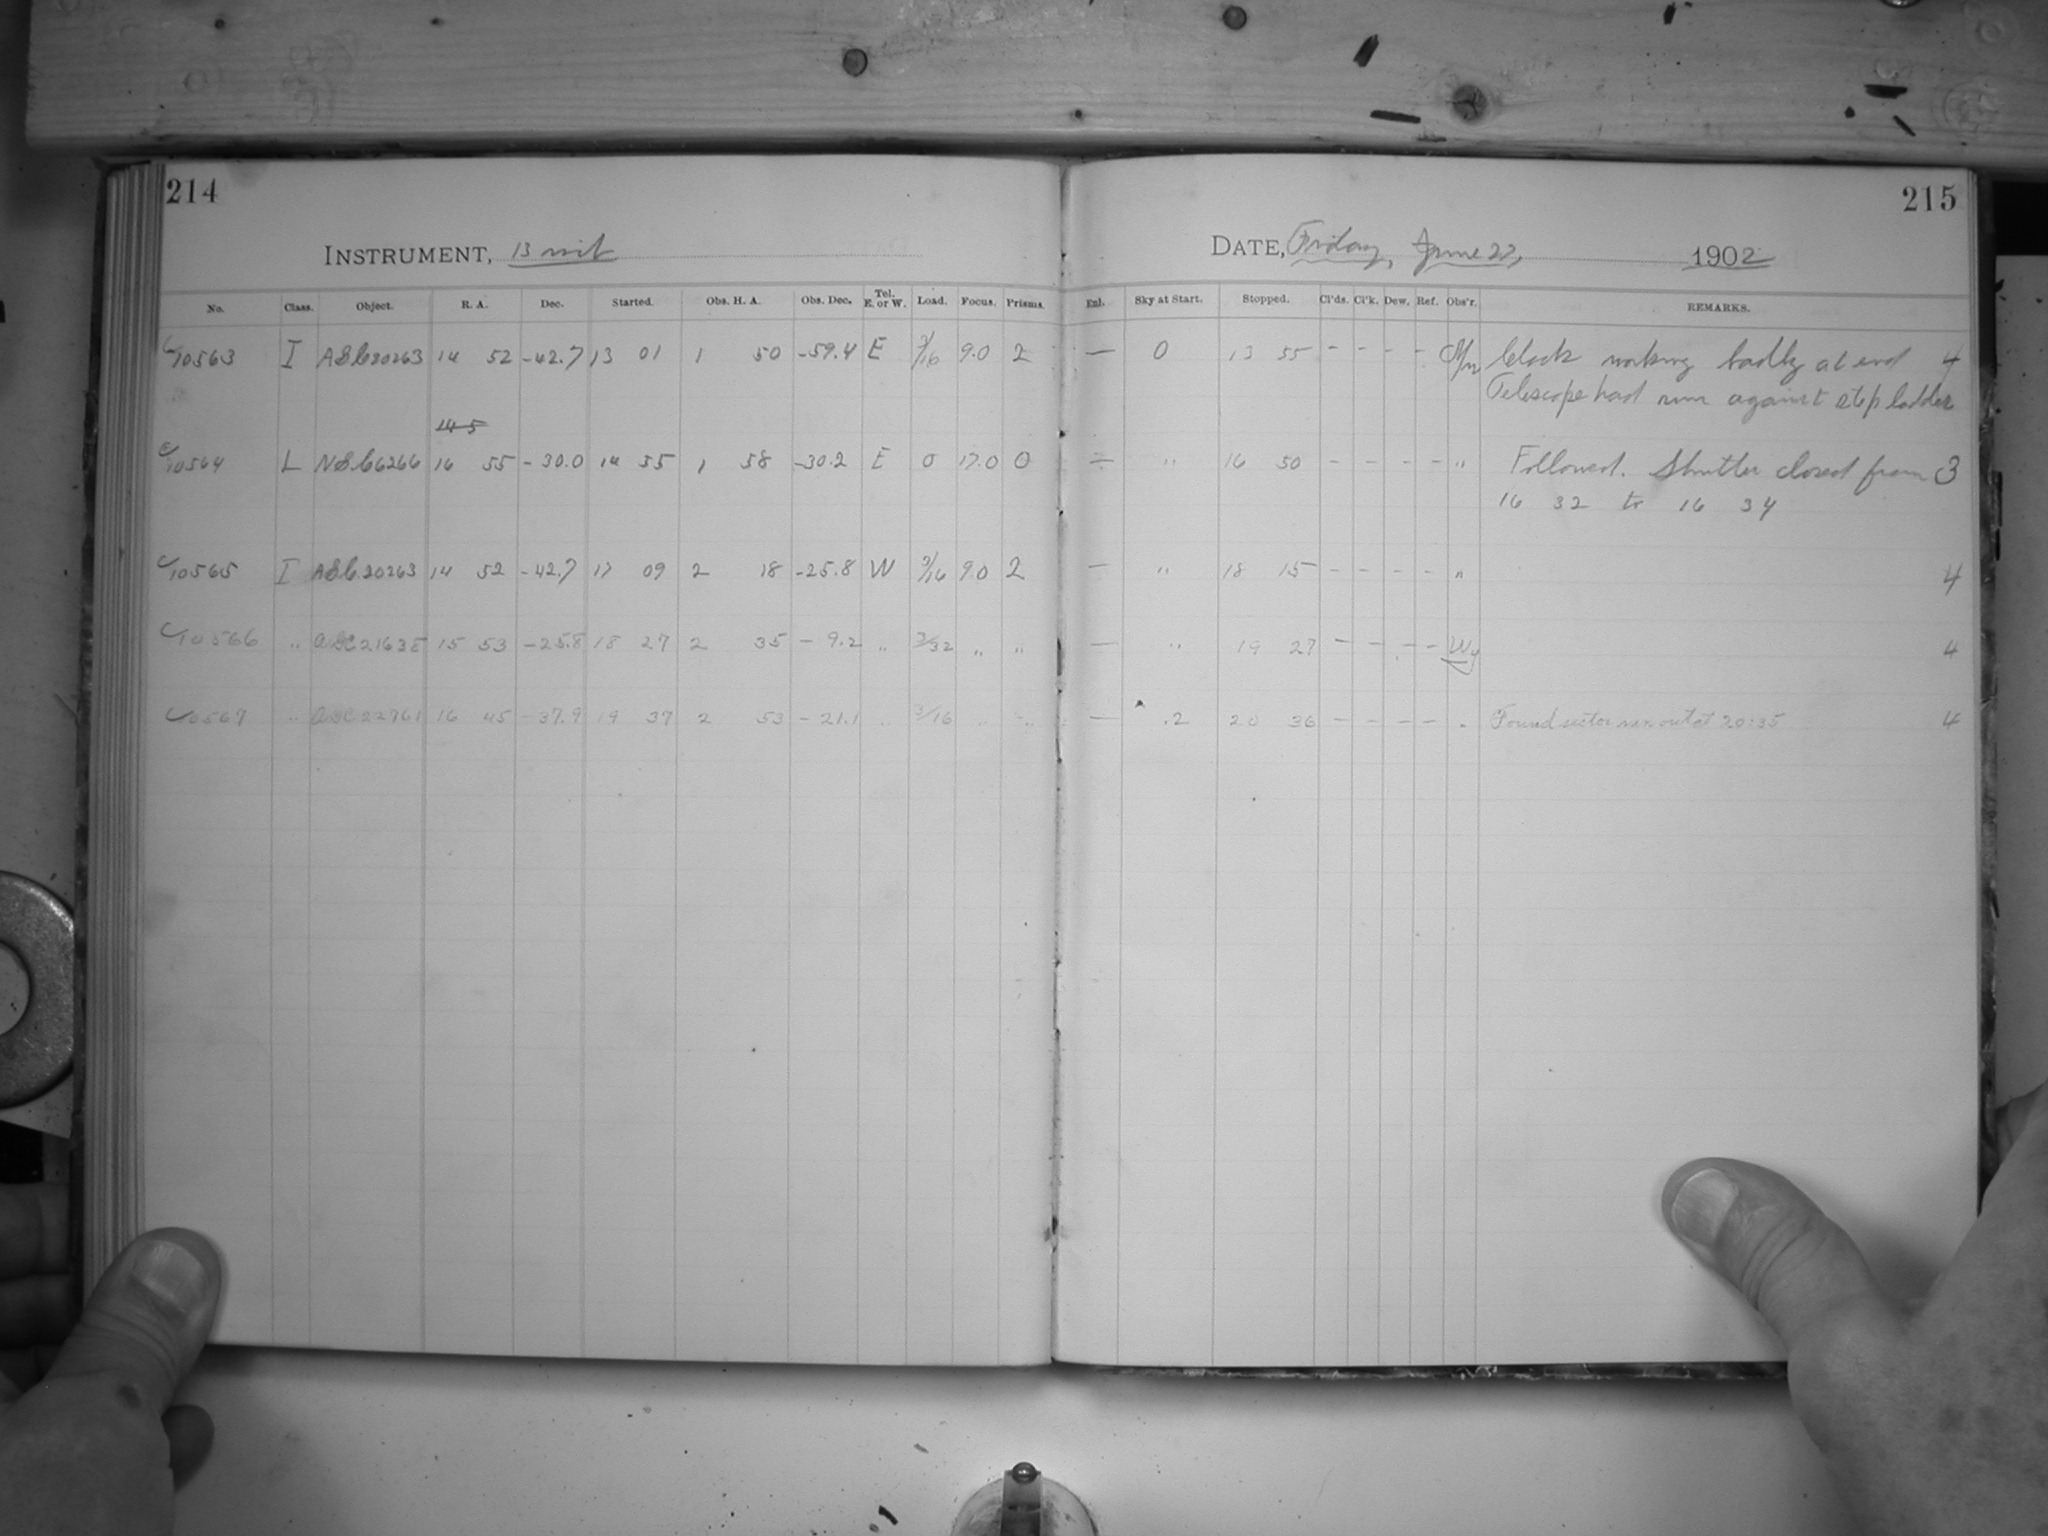 214
215
INSTRUMENT, 13 inch
DATE, Friday, June 27, 1902
No. Class. Object. R. A. Dec. Started. Obs. H. A. Obs. Dec. Tel. E. or W. Load. Focus. Prisms. Enl. Sky at Start. Stopped. Cl'ds. Cl'k. Dew. Ref. Obs'r. REMARKS.
C10563 I ASC20263 14 52 -42.7 13 01 1 50 -59.4 E 3/16 9.0 2 — 0 13 55 - - - - Clock working badly at end 4
Telescope had run against step ladder
14 5
C10564 L NGC6266 16 55 -30.0 14 55 1 58 -30.2 E 0 17.0 0 — " 16 50 - - - - " Followed. Shutter closed from 3
16 32 to 16 34
C10565 I ASC20263 14 52 -42.7 17 09 2 18 -25.8 W 3/16 9.0 2 — " 18 15 - - - - " 4
C10566 " ASC21635 15 53 -25.8 18 27 2 35 -9.2 " 3/32 " " — " 19 27 - - - - Wy 4
C10567 " ASC22761 16 45 -37.9 19 37 2 53 -21.1 " 3/16 " " — .2 20 36 - - - - " Found sector run out at 20:35 4